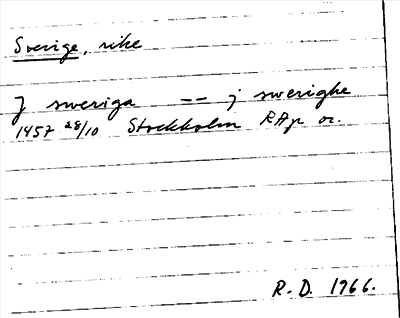 Sverige, rike
J sweriga -- j swerighe
1457 28/10 Stockholm RAp or.
R. D. 1966.